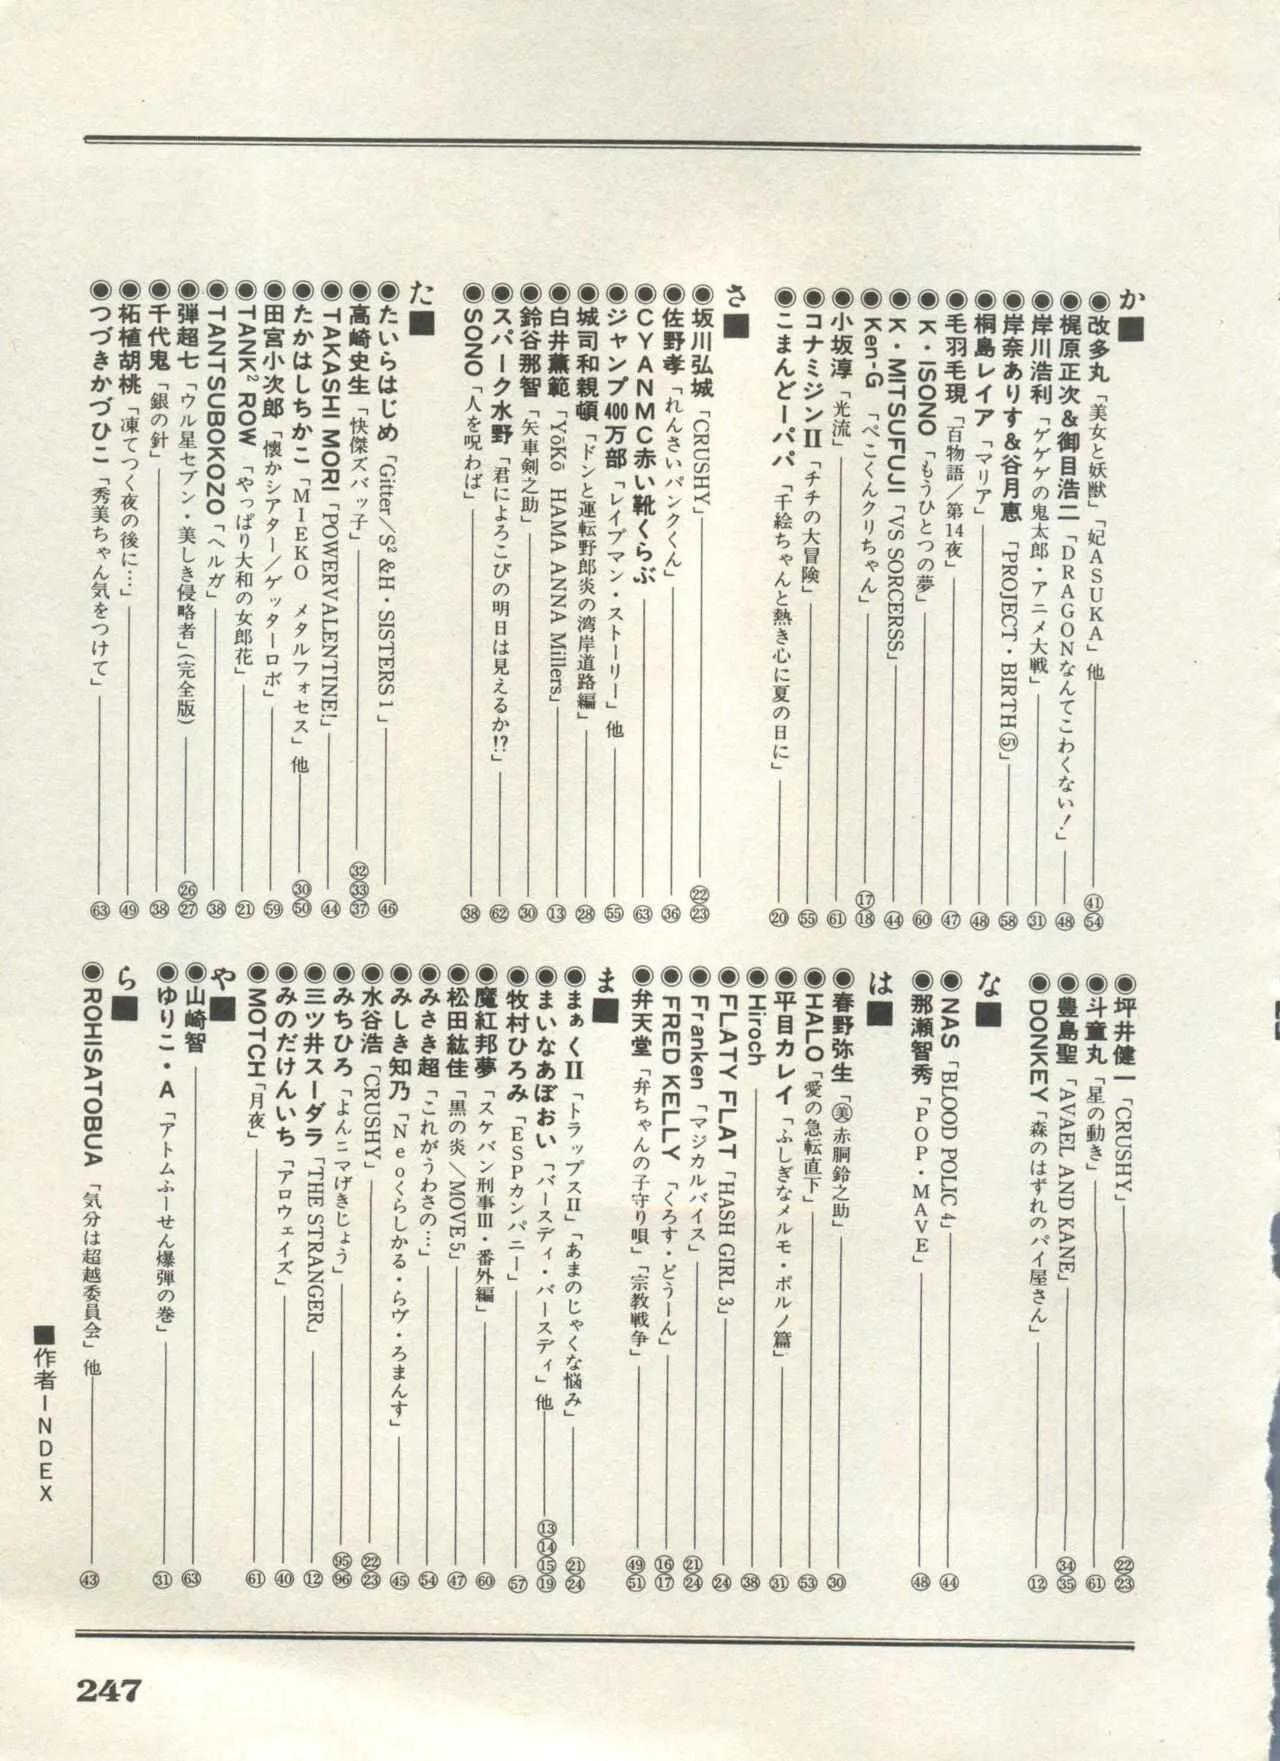 か■
●改多丸「美女と妖獣」「妃ASUKA」他 ㊶54
●梶原正次&御目浩二「DRAGONなんてこわくない!」 ㊽
●岸川浩利「ゲゲゲの鬼太郎・アニメ大戦」 ㉛
●岸奈ありす&谷月恵「PROJECT・BIRTH⑤」 58
●桐島レイア「マリア」 ㊽
●毛羽毛現「百物語/第14夜」 ㊼
●K・ISONO「もうひとつの夢」 60
●K・MITSUFUJI「VS SORCERSS」 ㊹
●Ken-G「ぺこくんクリちゃん」 ⑰⑱
●小坂淳「光流」 61
●コナミジンII「チチの大冒険」 55
●こまんどーパパ「千絵ちゃんと熱き心に夏の日に」 ⑳
さ■
●坂川弘城「CRUSHY」 ㉒㉓
●佐野孝「れんさいパンクくん」 ㊱
●CYANMC赤い靴くらぶ 63
●ジャンプ400万部「レイプマン・ストーリー」他 55
●城司和親頓「ドンと運転野郎炎の湾岸道路編」 ㉘
●白井薫範「YōKō HAMA ANNA Millers」 ⑬
●鈴谷那智「矢車剣之助」 ㉚
●スパーク水野「君によろこびの明日は見えるか!?」 62
●SONO「人を呪わば」 ㊳
た■
●たいらはじめ「Gitter/S²&H・SISTERS 1」 ㊻
●高崎史生「快傑ズバッ子」 ㉜㉝㊲
●TAKASHI MORI「POWERVALENTINE!」 ㊹
●たかはしちかこ「MIEKO メタルフォセス」他 ㉚㊿
●田宮小次郎「懐かシアター/ゲッターロボ」 59
●TANK² ROW「やっぱり大和の女郎花」 ㉑
●TANTSUBOKOZO「ヘルガ」 ㊳
●弾超七「ウル星セブン・美しき侵略者」(完全版) ㉖㉗
●千代鬼「銀の針」 ㊳
●柘植胡桃「凍てつく夜の後に…」 ㊾
●つづきかづひこ「秀美ちゃん気をつけて」 63
●坪井健一「CRUSHY」 ㉒㉓
●斗童丸「星の動き」 61
●豊島聖「AVAEL AND KANE」 ㉞㉟
●DONKEY「森のはずれのパイ屋さん」 ⑫
な■
●NAS「BLOOD POLIC 4」 ㊹
●那瀬智秀「POP・MAVE」 ㊽
は■
●春野弥生「㊤美赤胴鈴之助」 ㉚
●HALO「愛の急転直下」 53
●平目カレイ「ふしぎなメルモ・ポルノ篇」 ㉛
●Hiroch ㊳
●FLATY FLAT「HASH GIRL 3」 ㉔
●Franken「マジカルバイス」 ㉑㉔
●FRED KELLY「くろす・どうーん」 ⑯⑰
●弁天堂「弁ちゃんの子守り唄」「宗教戦争」 ㊾51
ま■
●まぁくII「トラップスII」「あまのじゃくな悩み」 ㉑㉔
●まいなあぼおい「バースディ・バースディ」他 ⑬⑭⑮⑲
●牧村ひろみ「ESPカンパニー」 57
●魔紅邦夢「スケバン刑事III・番外編」 60
●松田紘佳「黒の炎/MOVE 5」 ㊼
●みさき超「これがうわさの…」 54
●みしき知乃「Neoくらしかる・らヴ・ろまんす」 ㊺
●水谷浩「CRUSHY」 ㉒㉓
●みちひろ「よんコマげきじょう」 95 96
●三ツ井スーダラ「THE STRANGER」 ⑫
●みのだけんいち「アロウェイズ」 ㊵
●MOTCH「月夜」 61
や■
●山崎智 63
●ゆりこ・A「アトムふーせん爆弾の巻」 ㉛
ら■
●ROHISATOBUA「気分は超越委員会」他 ㊸
■作者INDEX
247